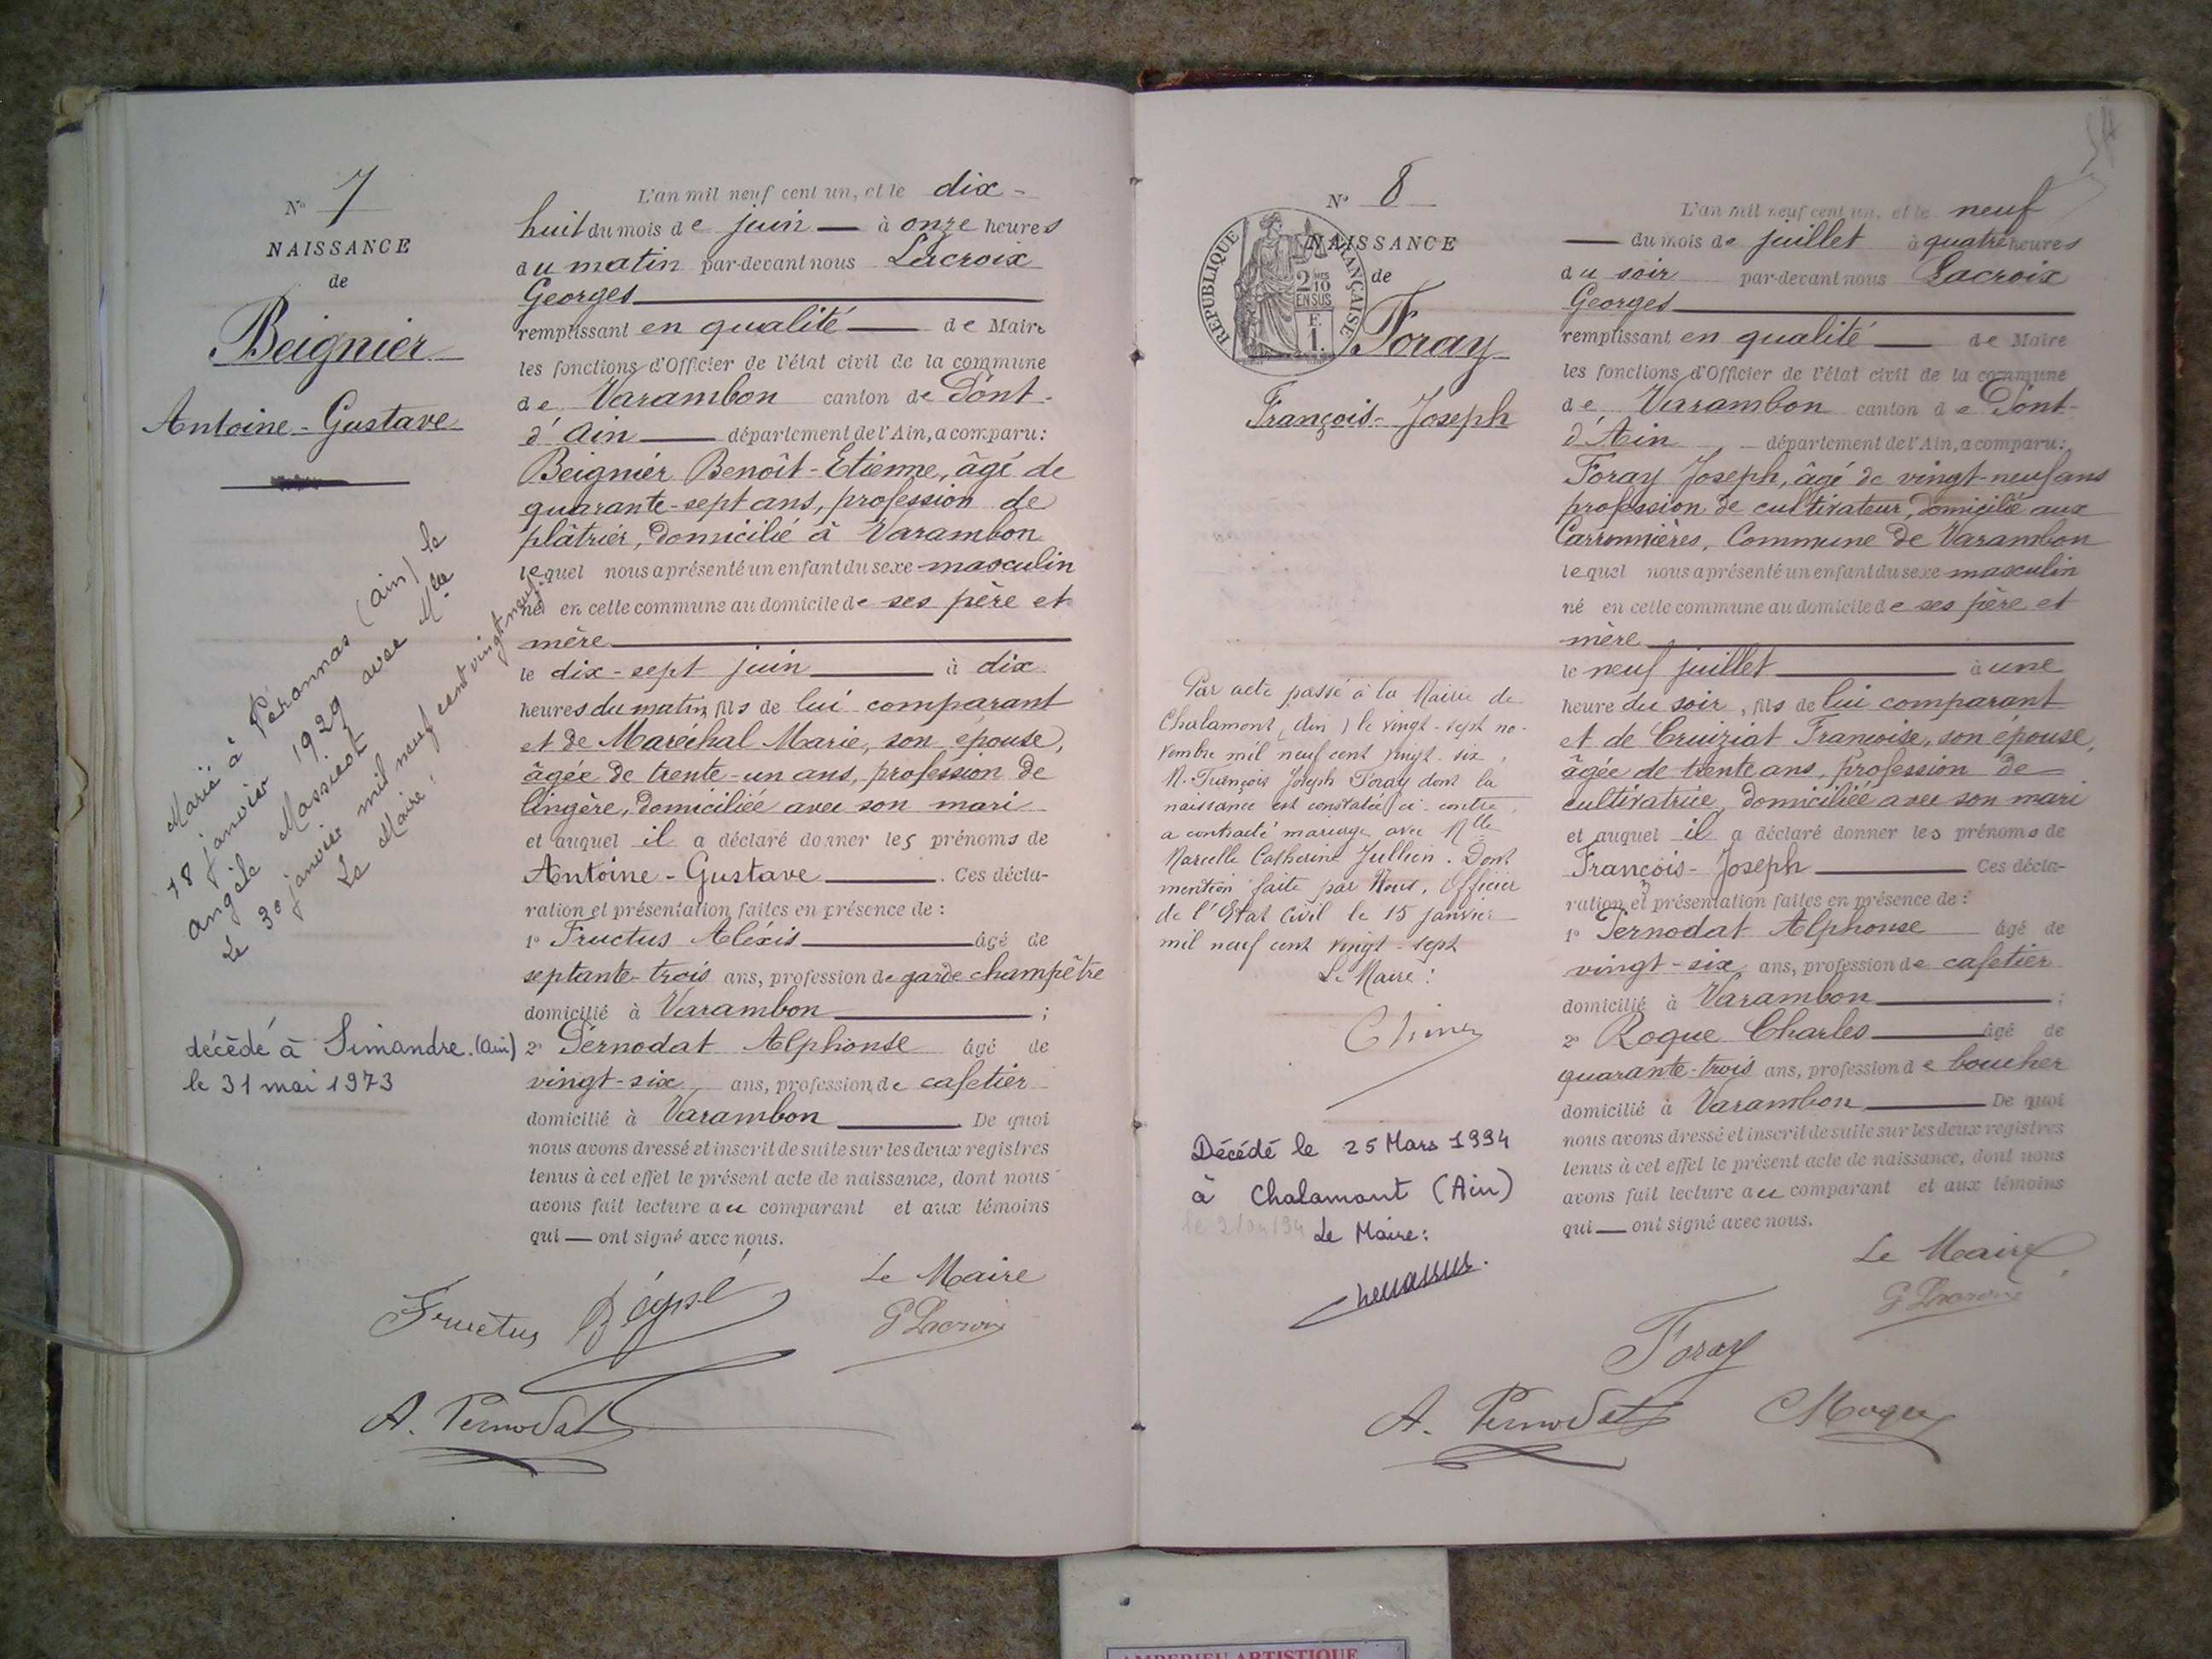 N° 7
NAISSANCE
de
Beignier
Antoine-Gustave
Marié à Péronnas (Ain) le
18 janvier 1929 avec Mlle
Angèle Massiot
Le 30 janvier mil neuf cent vingt neuf
Le Maire
décédé à Simandre. (Ain)
le 31 mai 1973
L'an mil neuf cent un, et le dix-
huit du mois de juin — à onze heures
du matin par-devant nous Lacroix
Georges
remplissant en qualité — de Maire
les fonctions d'Officier de l'état civil de la commune
de Varambon canton de Pont-
d'Ain — département de l'Ain, a comparu:
Beignier Benoît-Etienne, âgé de
quarante-sept ans, profession de
plâtrier, domicilié à Varambon
lequel nous a présenté un enfant du sexe masculin
né en cette commune au domicile de ses père et
mère
le dix-sept juin — à dix
heures du matin, fils de lui comparant
et de Maréchal Marie, son épouse,
âgée de trente-un ans, profession de
lingère, domiciliée avec son mari
et auquel il a déclaré donner les prénoms de
Antoine-Gustave — . Ces décla-
ration et présentation faites en présence de :
1° Fructus Aléxis — âgé de
septante-trois ans, profession de garde champêtre
domicilié à Varambon — ;
2° Pernodat Alphonse âgé de
vingt-six ans, profession de cafetier
domicilié à Varambon — . De quoi
nous avons dressé et inscrit de suite sur les deux registres
tenus à cet effet le présent acte de naissance, dont nous
avons fait lecture au comparant et aux témoins
qui — ont signé avec nous.
Le Maire
Fructus G Lacroix
A. Pernodat
N° 8
NAISSANCE
de
REPUBLIQUE FRANÇAISE
2/10 EN SUS
F. 1.
Foray
François-Joseph
Par acte passé à la Mairie de
Chalamont (Ain) le vingt-sept no-
vembre mil neuf cent vingt-six,
M. François Joseph Foray dont la
naissance est constatée ci-contre,
a contracté mariage avec Mlle
Marcelle Catherine Jullien. Dont
mention faite par Nous, Officier
de l'Etat Civil le 15 janvier
mil neuf cent vingt-sept
Le Maire :
Décédé le 25 Mars 1994
à Chalamont (Ain)
Le Maire:
L'an mil neuf cent un, et le neuf
— du mois de juillet à quatre heures
du soir par-devant nous Lacroix
Georges
remplissant en qualité — de Maire
les fonctions d'Officier de l'état civil de la commune
de Varambon canton de Pont-
d'Ain — département de l'Ain, a comparu:
Foray Joseph, âgé de vingt-neuf ans
profession de cultivateur, domicilié aux
Carronnières, Commune de Varambon
lequel nous a présenté un enfant du sexe masculin
né en cette commune au domicile de ses père et
mère
le neuf juillet — à une
heure du soir, fils de lui comparant
et de Cruiziat Françoise, son épouse,
âgée de trente ans, profession de
cultivatrice, domiciliée avec son mari
et auquel il a déclaré donner les prénoms de
François-Joseph — Ces décla-
ration et présentation faites en présence de :
1° Pernodat Alphonse âgé de
vingt-six ans, profession de cafetier
domicilié à Varambon — ;
2° Roque Charles — âgé de
quarante-trois ans, profession de boucher
domicilié à Varambon — De quoi
nous avons dressé et inscrit de suite sur les deux registres
tenus à cet effet le présent acte de naissance, dont nous
avons fait lecture au comparant et aux témoins
qui — ont signé avec nous.
Le Maire
G Lacroix
Foray
A. Pernodat
AMBERIEU ARTISTIQUE